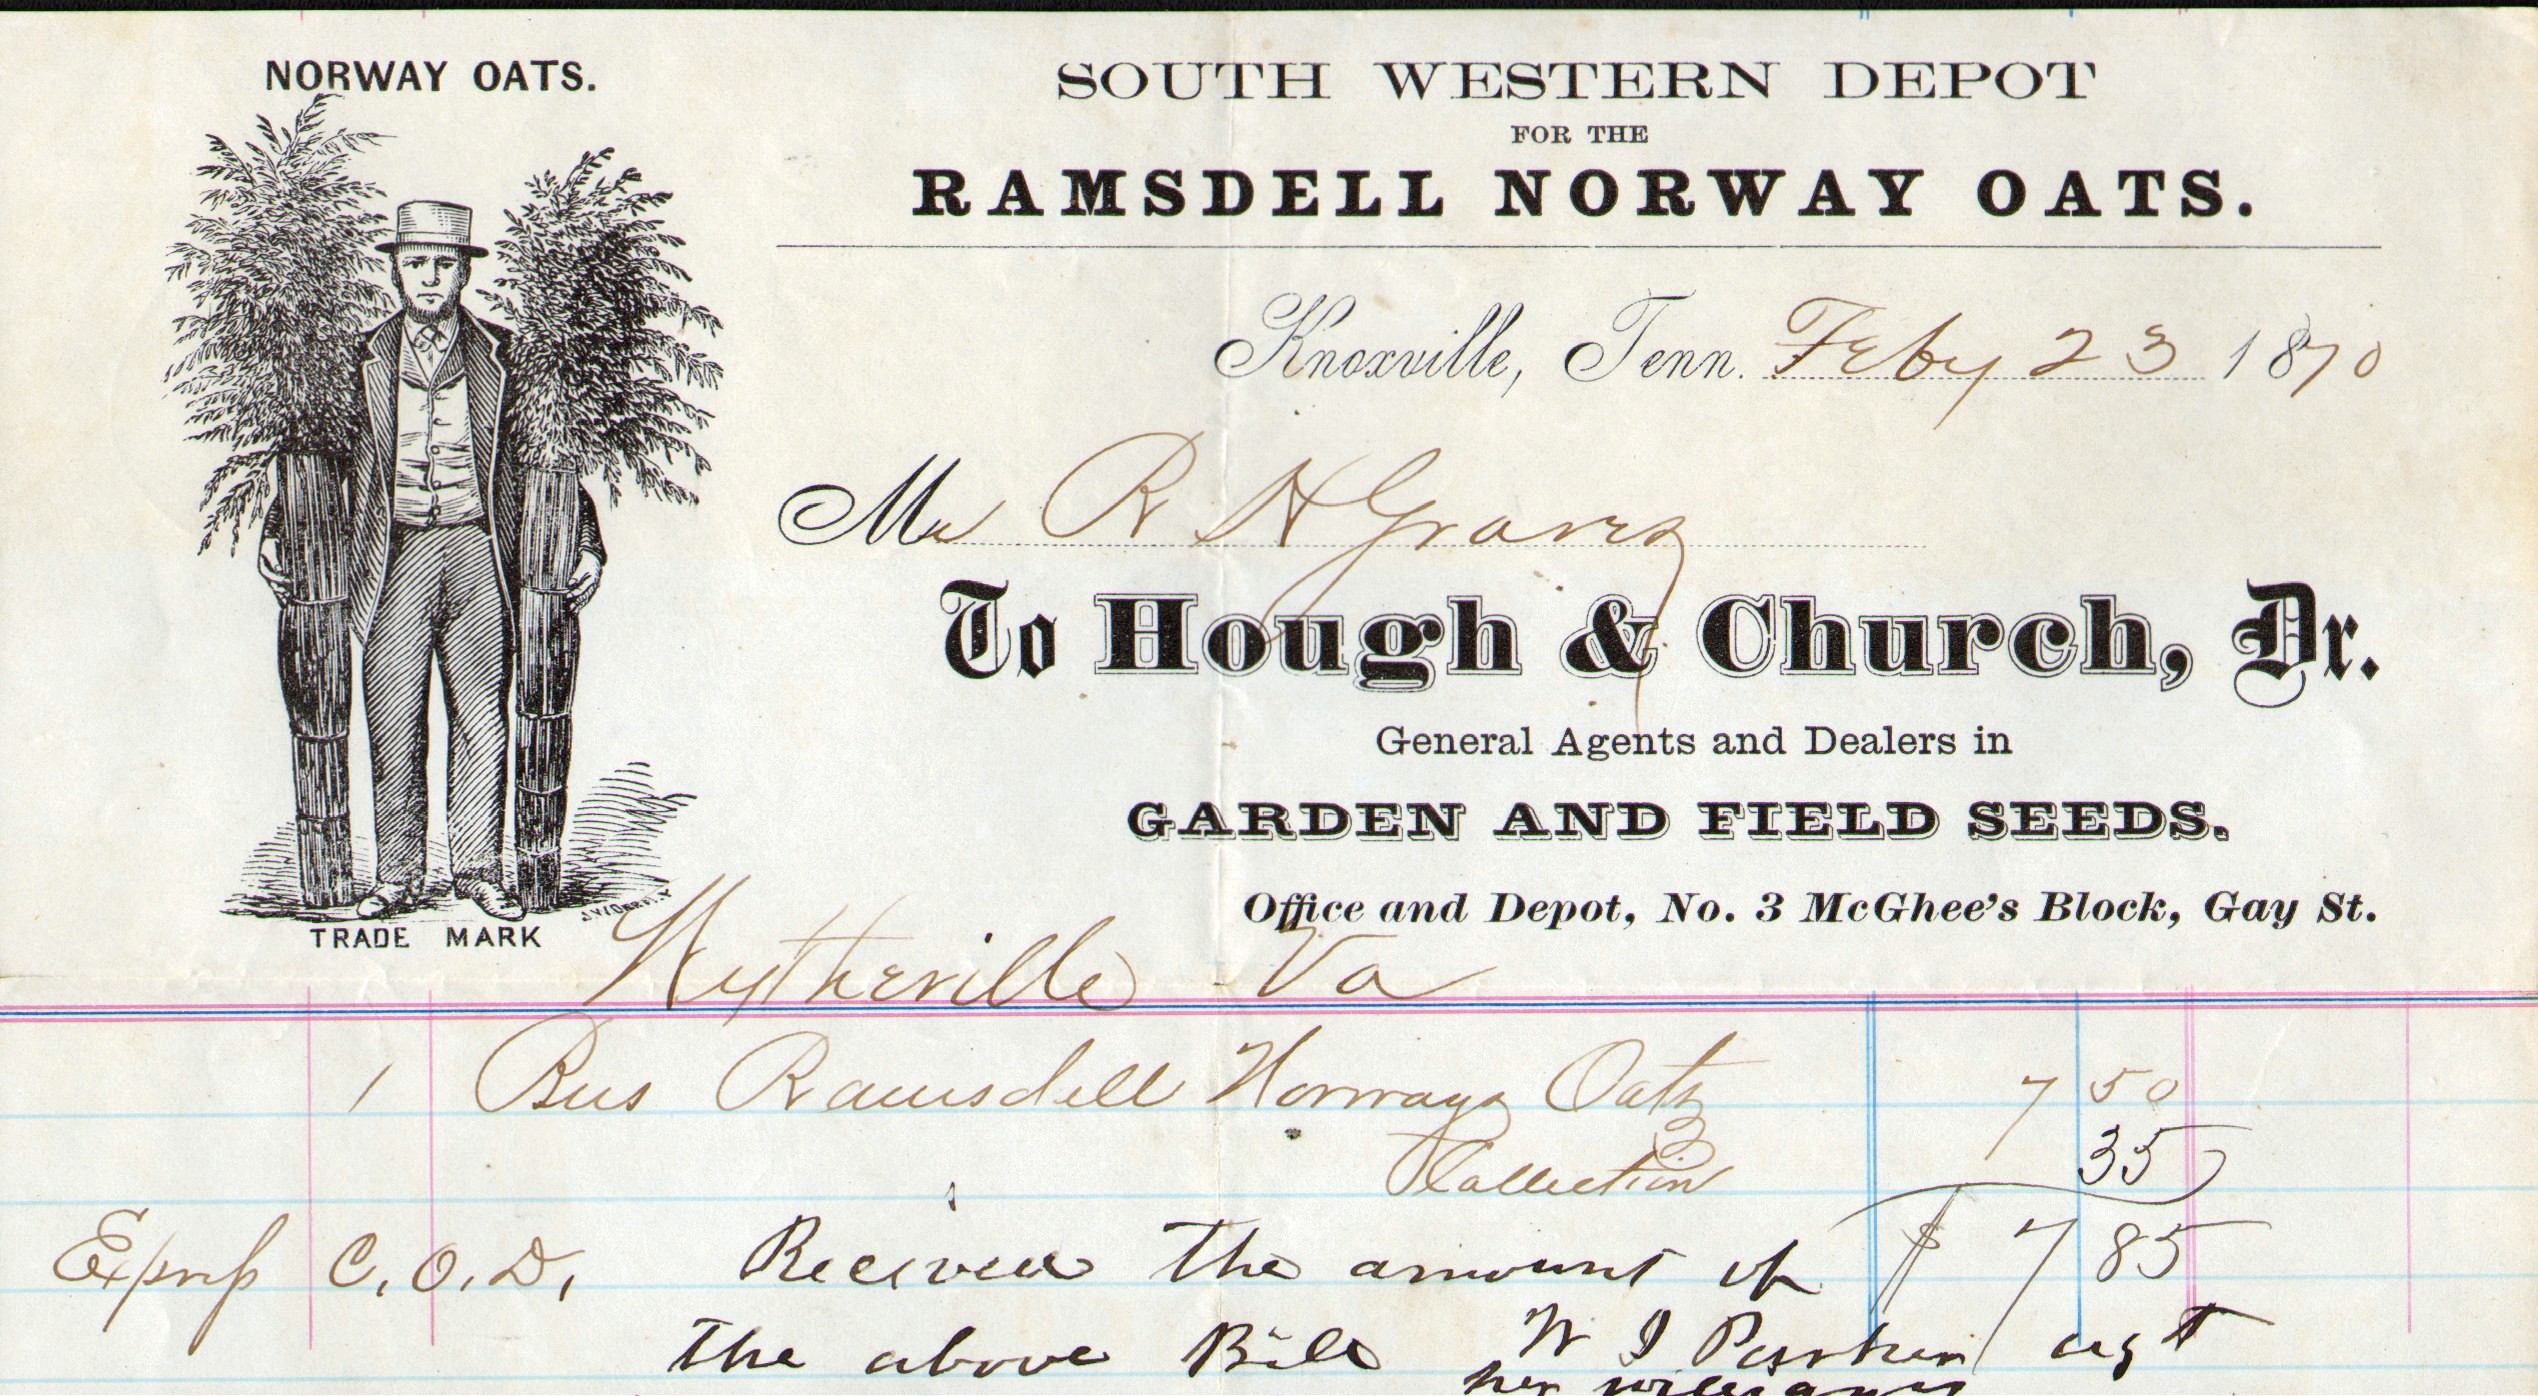 NORWAY OATS.
SOUTH WESTERN DEPOT
FOR THE
RAMSDELL NORWAY OATS.
Knoxville, Tenn. Feby 23 1870
Mr R H Graves
To Hough & Church, Dr.
General Agents and Dealers in
GARDEN AND FIELD SEEDS.
Office and Depot, No. 3 McGhee's Block, Gay St.
TRADE MARK
Wytheville Va
1 Bus Ramsdell Norway Oats 7 50
Collection 35
Express C.O.D. $ 7 85
Received the amount of
the above Bill W I Parker agt